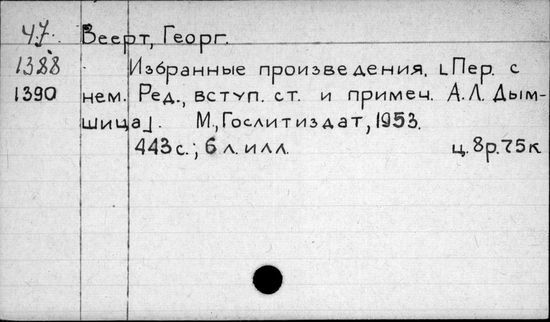 47. Веерт, Георг.
1388 Избранные произведения. [Пер. с
1390 нем. Ред., вступ. ст. и примеч. А.Л. Дым-
шица]. М., Гослитиздат, 1953.
443 с.; 6 л. илл. ц. 8р.75к